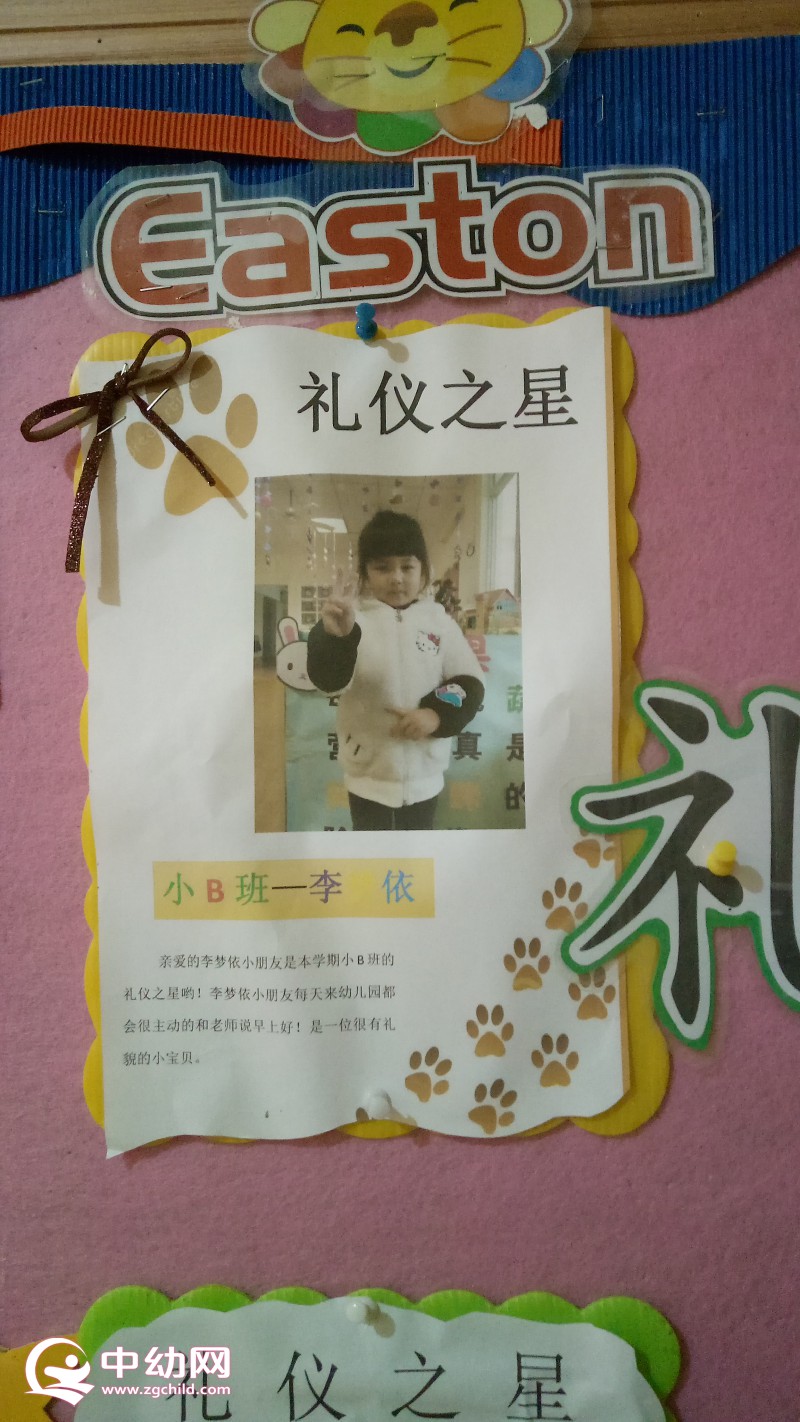 Easton
礼仪之星
小B班—李梦依
亲爱的李梦依小朋友是本学期小B班的
礼仪之星哟！李梦依小朋友每天来幼儿园都
会很主动的和老师说早上好！是一位很有礼
貌的小宝贝。
礼
礼仪之星
中幼网
www.zgchild.com